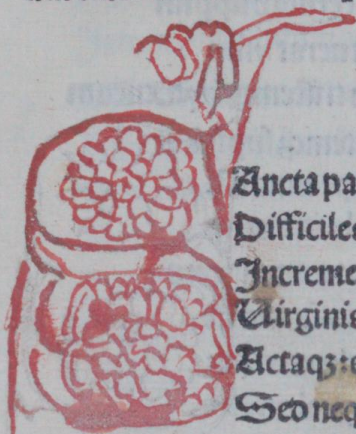 Ancta pa
Difficile
Increme
Uirginis
Actaqꝫ:
Sed neq